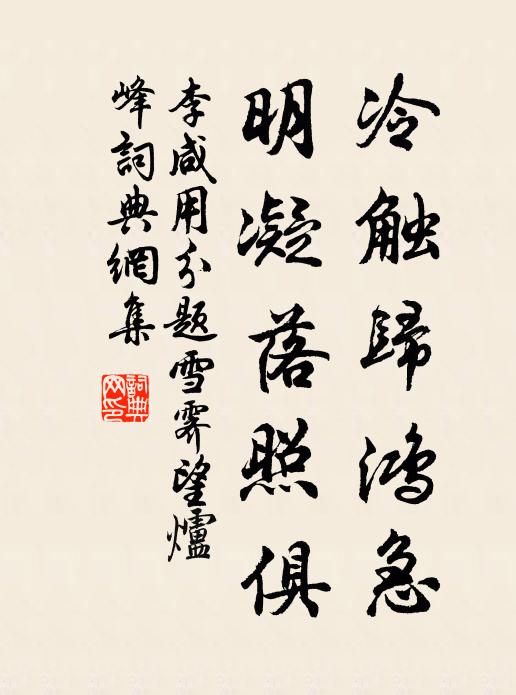 冷触歸鴻急
明凝落照俱
李咸用分题雪霽望爐
峰詞典網集
詞典網印